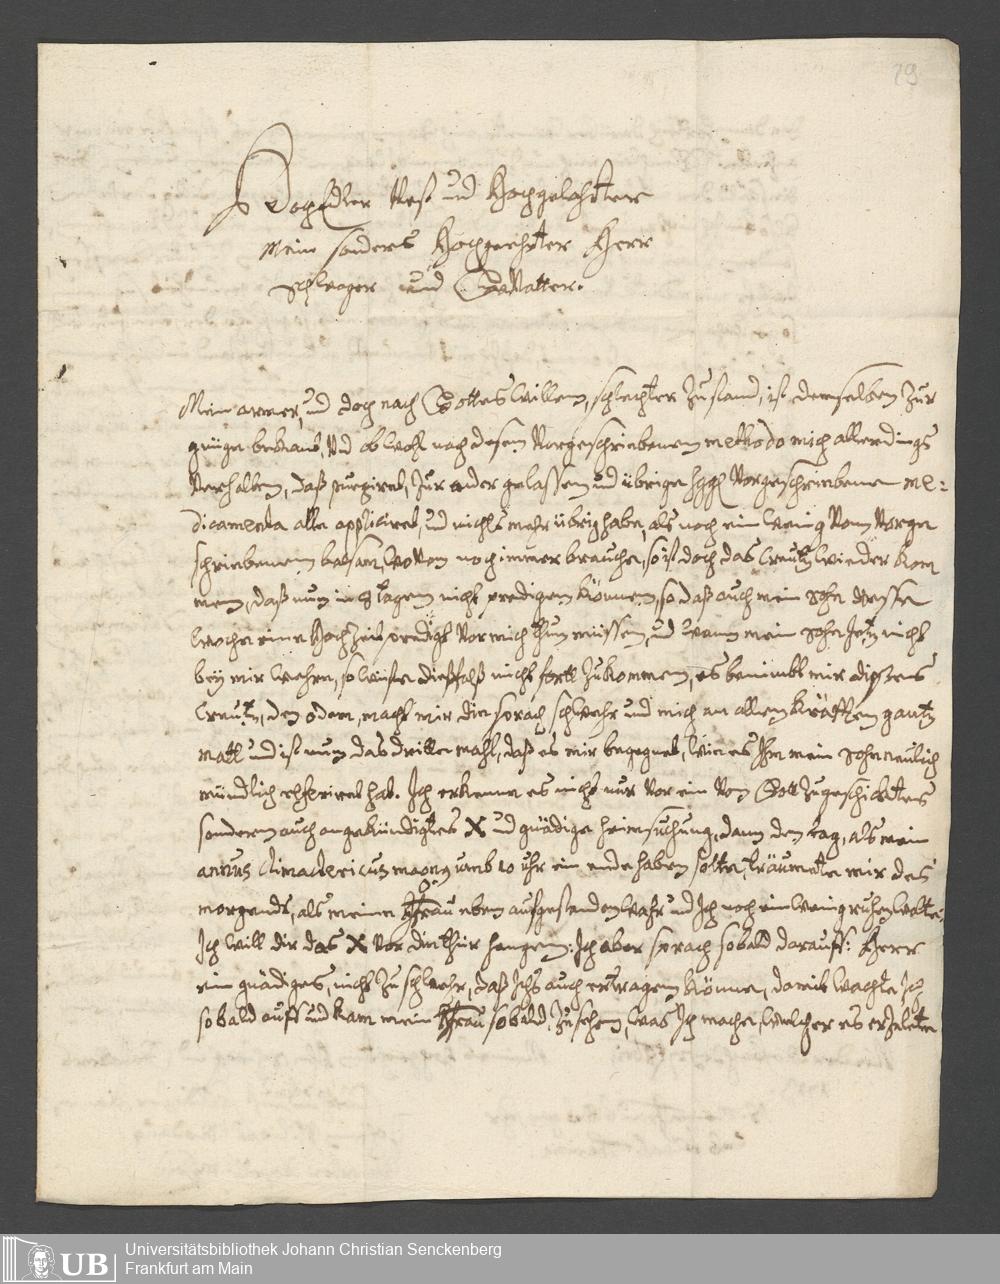 79
HochEdler Vest und Hochgelahrter
Mein sonders Hochgeehrter Herr
Schwager und GeVatter.
Mein armer, und doch nach Gottes Willen, schlechter Zustand, ist demselben Zur
gnüge bekant, Vnd obwohl nach dessen Vorgeschriebenem methodo mich allerdings
Verhalten, daß purgiret, Zur ader gelassen und übrige Vorgeschriebene me-
dicamenta alle appliciret, und nichts mehr übrig habe, als noch ein wenig Vom Vorge
schriebenem balsam, woVon noch immer brauche, so ist doch das Creutz wieder kom
men, daß nun in 8 tagen nicht predigen können, so daß auch mein Sohn
Woche eine Hochzeit predigt Vor mich thun müssen, und wann mein Sohn Jetzt nicht
bey mir wehre, so wüste dießfalß nicht fortt Zukommen, es benimbt mir
Creutz, den odem, macht mir die sprach schwehr und mich an allen Kräfften gantz
matt und ist nun das dritte mahl, daß es mir begegnet, wie es Ihm mein Sohn neulich
mündlich referiret hat. Ich erkenne es nicht nur Vor ein Von Gott Zugeschicktes
sondern auch angekündigtes X und gnädige heimsuchung, dann den tag, als mein
annus Climactericus magnus umb 10 uhr ein ende haben solte, träumete mir des
morgends, als meine Frau eben aufgestanden wahr und Ich noch ein wenig ruhen wolte,
Ich will dir das X Vor die thür hengen: Ich aber sprach sobald darauff: Herr
ein gnädiges, nicht Zu schwehr, daß Ichs auch ertragen könne, damit wachte Ich
sobald auff und kam mein Frau sobald, Zusehen, was Ich mache, welcher es erzalete
Universitätsbibliothek Johann Christian Senckenberg
Frankfurt am Main
UB